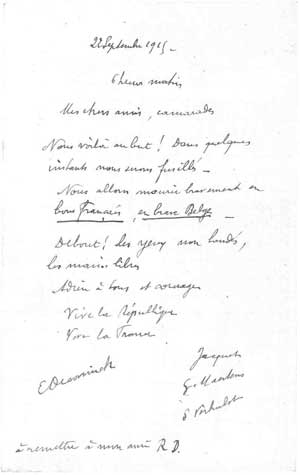 22 Septembre 1915 -
6 heures matin
Mes chers amis, camarades
Nous voilà au but ! Dans quelques
instants nous serons fusillés -
Nous allons mourir bravement en
bons Français, en brave Belge -
Debout ! les yeux non bandés,
les mains libres
Adieu à tous et courage
Vive la République
Vive la France
Jacquet
E Deconinck
G. Maertens
S Verhulst
à remettre à mon ami R. D.